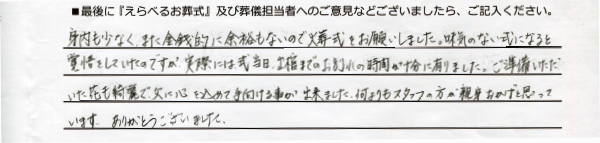 ■最後に『えらべるお葬式』及び葬儀担当者へのご意見などございましたら、ご記入ください。
身内も少なく、また金銭的に余裕もないので火葬式をお願いしました。味気のない式になると
覚悟をしていたのですが、実際には式当日、出棺までのお別れの時間が十分に有りました。ご準備いただ
いた花も綺麗で、父に心を込めて手向ける事が出来ました。何よりもスタッフの方が親身なおかげと思って
います。ありがとうございました。